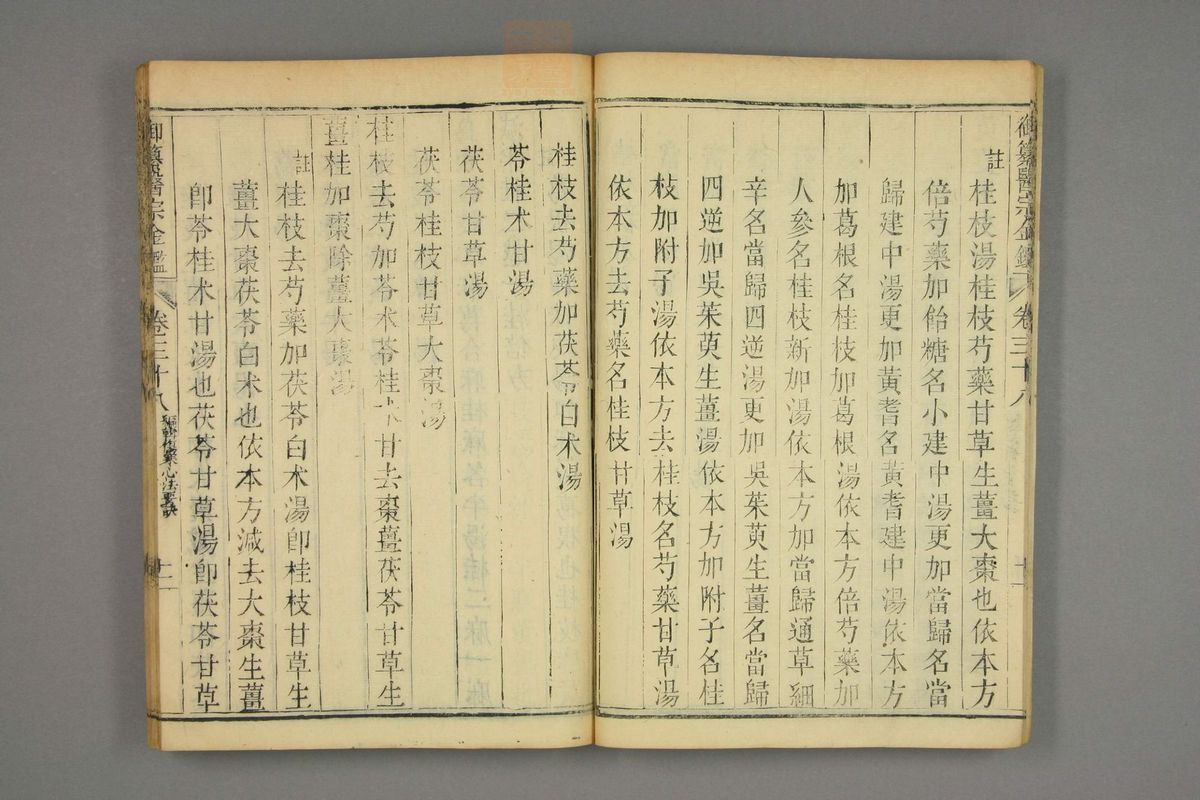 御纂醫宗金鑑 卷三十八 十二
註 桂枝湯桂枝芍藥甘草生薑大棗也依本方
倍芍藥加飴糖名小建中湯更加當歸名當
歸建中湯更加黃耆名黃耆建中湯依本方
加葛根名桂枝加葛根湯依本方倍芍藥加
人參名桂枝新加湯依本方加當歸通草細
辛名當歸四逆湯更加吳茱萸生薑名當歸
四逆加吳茱萸生薑湯依本方加附子名桂
枝加附子湯依本方去桂枝名芍藥甘草湯
依本方去芍藥名桂枝甘草湯
桂枝去芍藥加茯苓白朮湯
苓桂朮甘湯
茯苓甘草湯
茯苓桂枝甘草大棗湯
桂枝去芍加苓朮苓桂朮甘去棗薑茯苓甘草生
薑桂加棗除薑大棗湯
註 桂枝去芍藥加茯苓白朮湯卽桂枝甘草生
薑大棗茯苓白朮也依本方減去大棗生薑
卽苓桂朮甘湯也茯苓甘草湯卽茯苓甘草
御纂醫宗金鑑 卷三十八 傷寒心法要訣